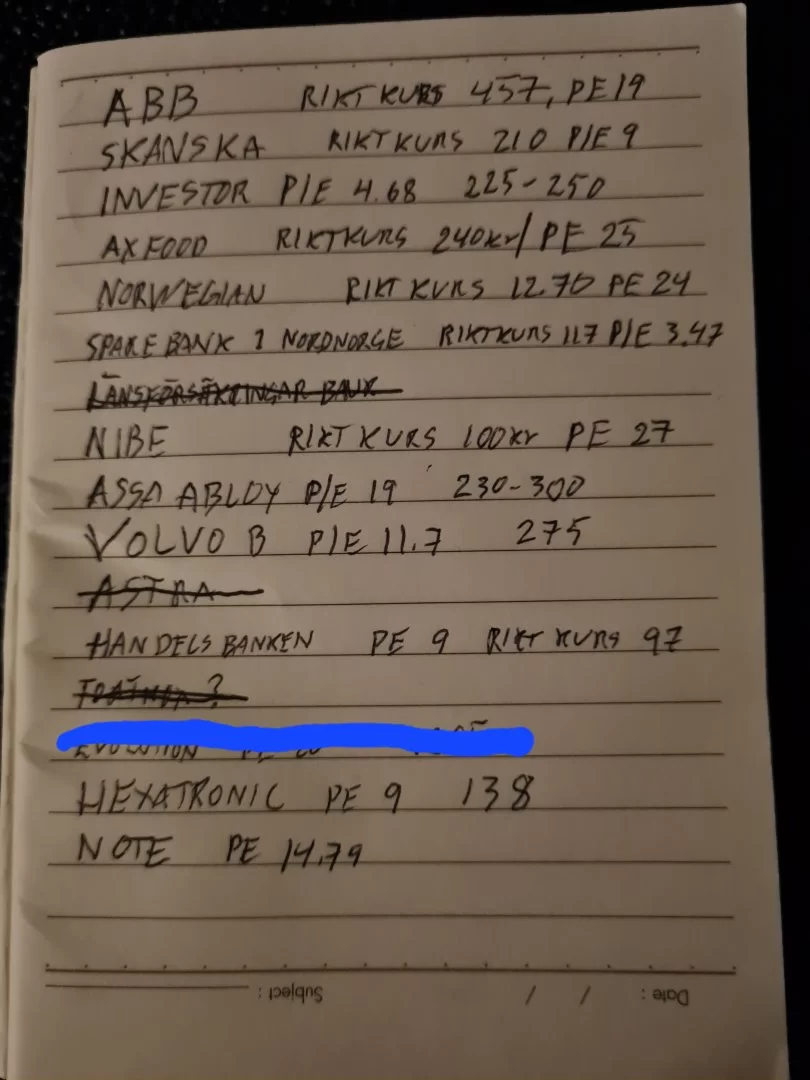 ABB RIKTKURS 457, PE 19
SKANSKA RIKTKURS 210 P/E 9
INVESTOR P/E 4.68 225-250
AXFOOD RIKTKURS 240kr/ PE 25
NORWEGIAN RIKTKURS 12.70 PE 24
SPAREBANK 1 NORDNORGE RIKTKURS 117 P/E 3.47
LÄNSFÖRSÄKRINGAR BANK
NIBE RIKTKURS 100kr PE 27
ASSA ABLOY P/E 19 230-300
VOLVO B P/E 11.7 275
ASTRA
HANDELSBANKEN PE 9 RIKTKURS 97
EVOLUTION PE
HEXATRONIC PE 9 138
NOTE PE 14.79
Subject :
Date : / /